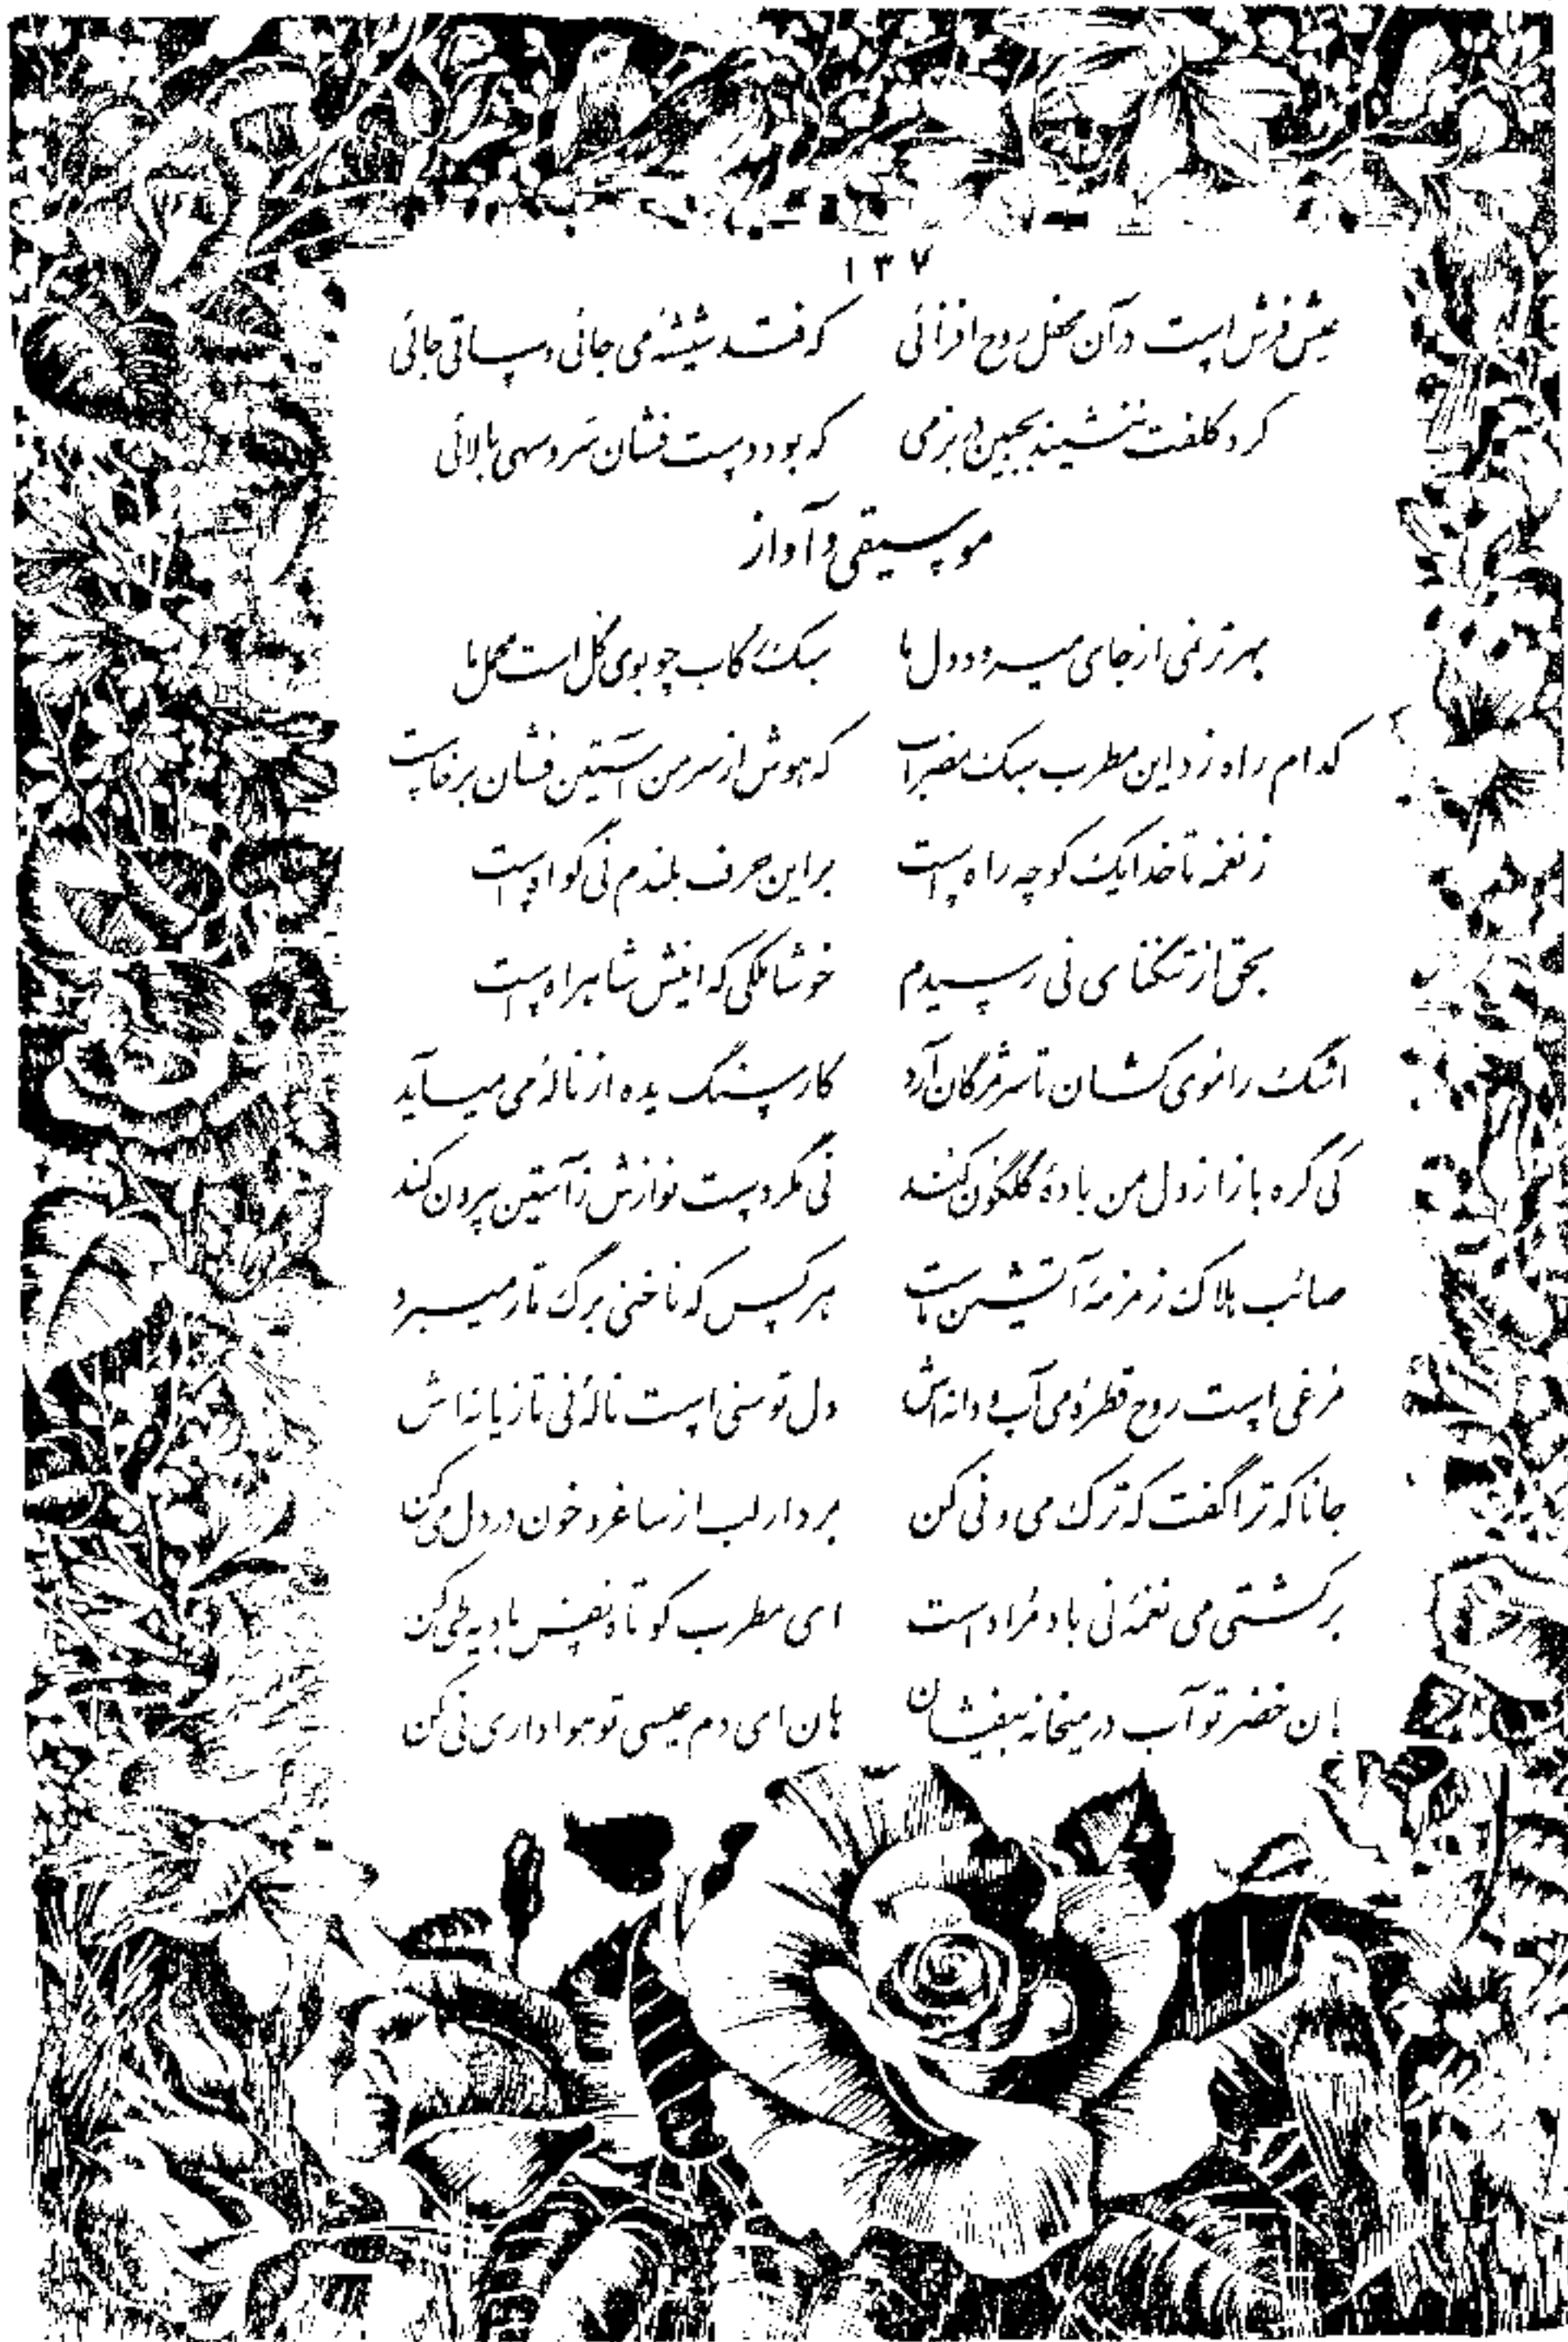 ۱۳۷
عیش فرش است در آن محفل روح افزائی که فتد شیشهٔ می جائی و ساقی جائی
گرد کلفت ننشیند بجبین در بزمی که بود دست فشان سرو سهی بالائی
موسیقی و آواز
بهر ترنمی از جای میرود دل ها سبک رکاب چو بوی گل است محمل ما
کدام راه زد این مطرب سبک مضراب که هوش از سر من آستین فشان برخاست
ز نغمه تا خدا یک کوچه راه است بر این حرف بلندم نی گواه است
بحق از تنگنای نی رسیدم خوشا ملکی که اینش شاهراه است
اشک را موی کشان تا سر مژگان آرد کار سنگ یده از نالهٔ می میآید
کی گره باز از دل من بادهٔ گلگون کند نی مگر دست نوازش ز آستین بیرون کند
صائب هلاک زمزمهٔ آتشین ماست هر کس که ناخنی برگ تار میبرد
مرغی است روح قطرهٔ می آب و دانه اش دل توسنی است نالهٔ نی تازیانه اش
جانا که ترا گفت که ترک می و نی کن بردار لب از ساغر و خون در دل می کن
بر کشتی می نغمهٔ نی باد مراد است ای مطرب کوتاه نفس بادیه طی کن
هان خضر تو آب در میخانه بیفشان هان ای دم عیسی تو هواداری نی کن